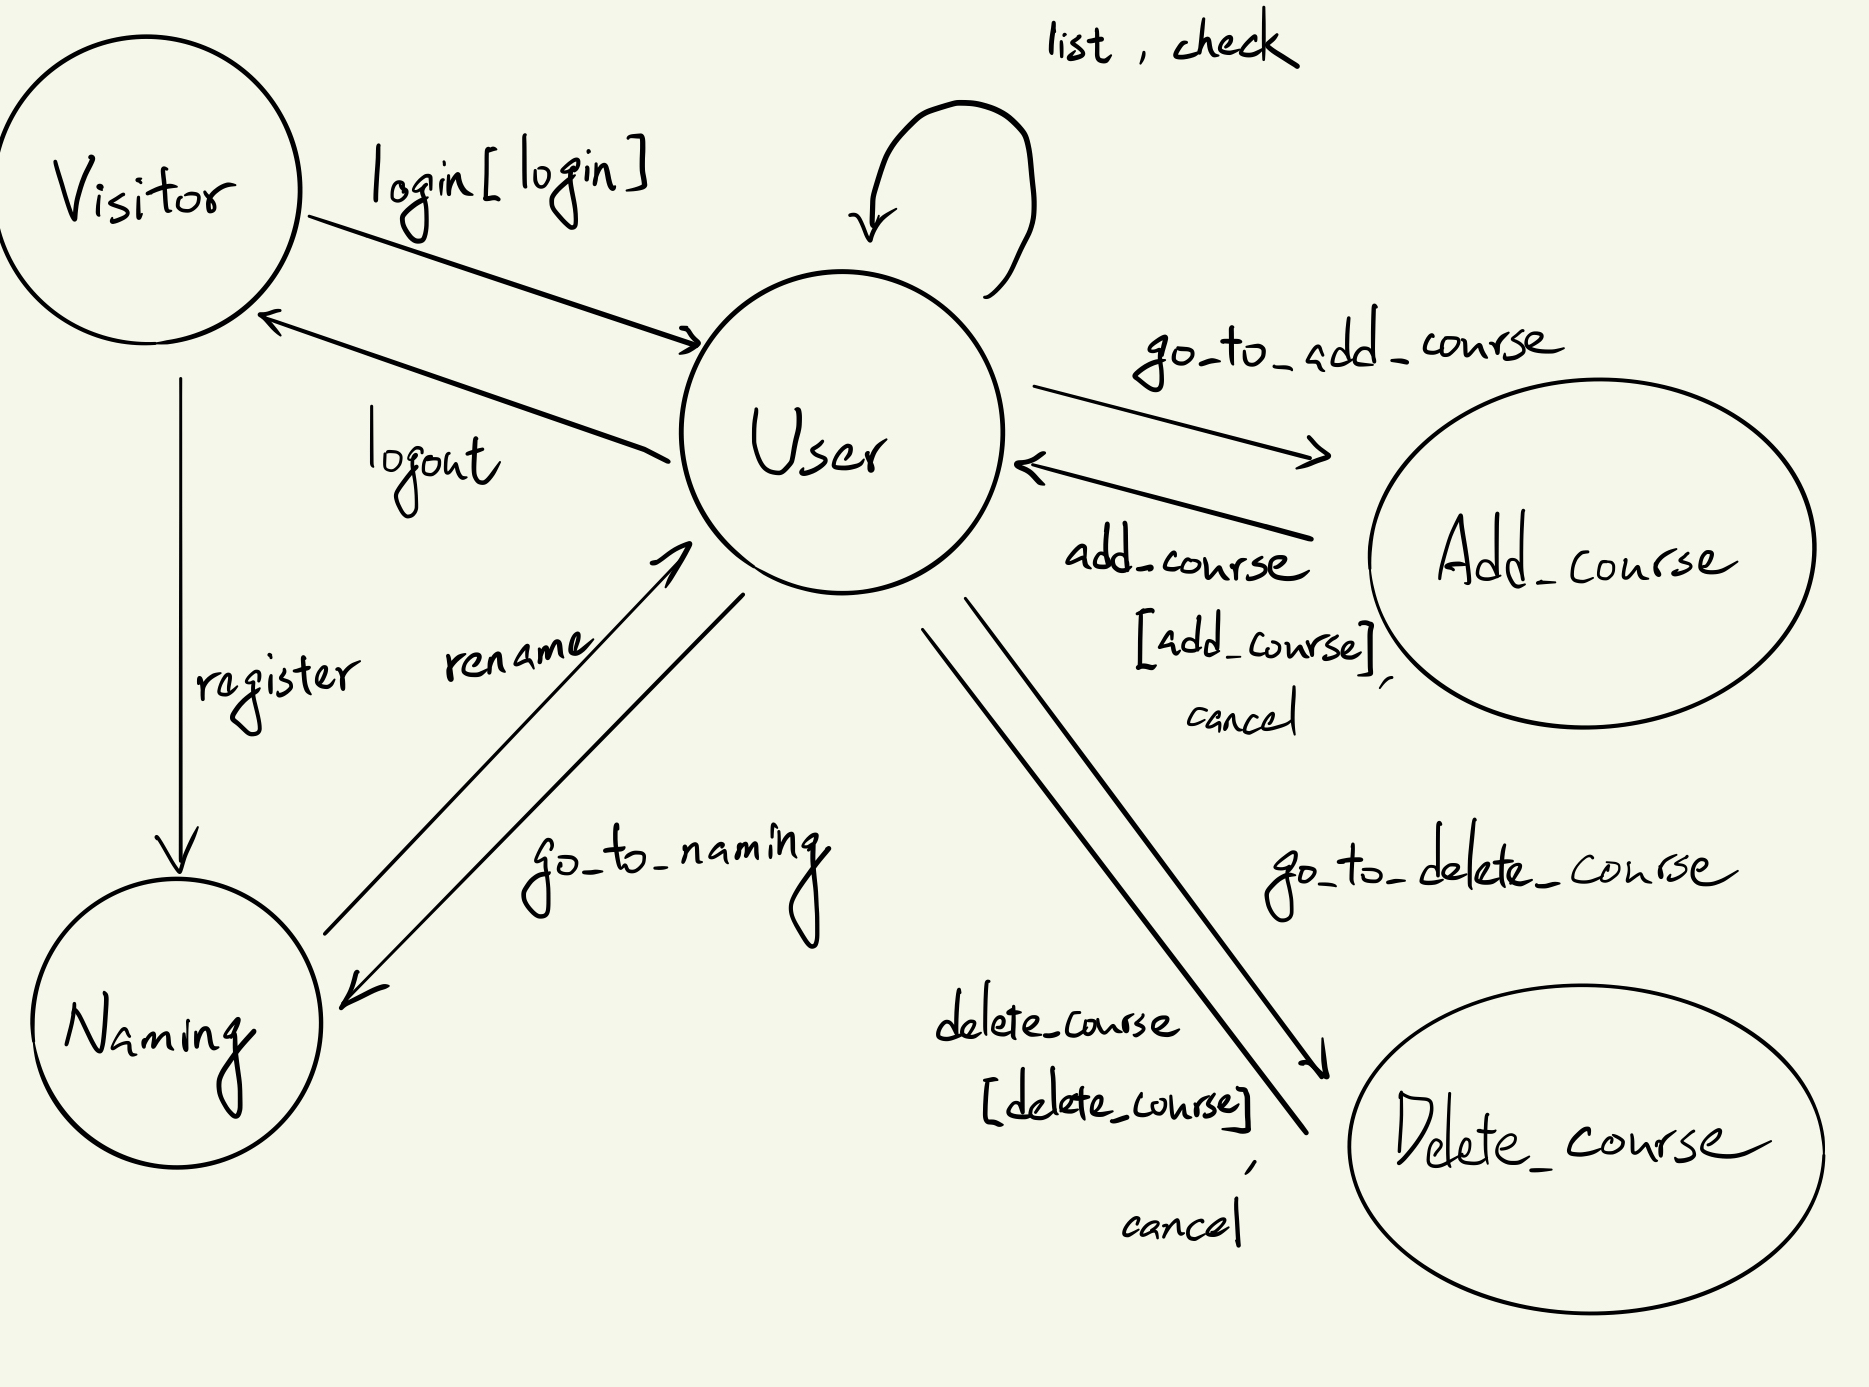 list , check
Visitor
login[login]
go_to_add_course
logout
User
add_course
[add_course],
cancel
Add_course
register
rename
go_to_naming
go_to_delete_course
Naming
delete_course
[delete_course]
,
cancel
Delete_course